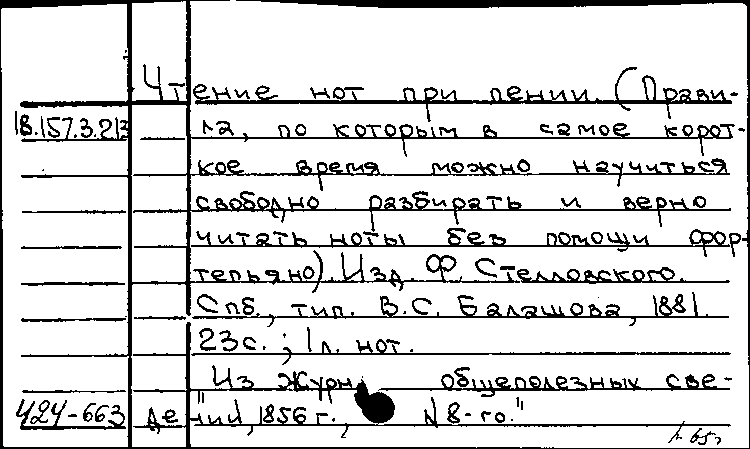 Чтение нот при пении. (Прави-
18.157.3.213 ла, по которым в самое корот-
кое время можно научиться
свободно разбирать и верно
читать ноты без помощи фор-
тепьяно). Изд. Ф. Стелловского.
Спб., тип. В.С. Балашова, 1881.
23 с. ; 1 л. нот.
"Из Журн. общеполезных све-
424-663 дений, 1856 г., N 8-го."